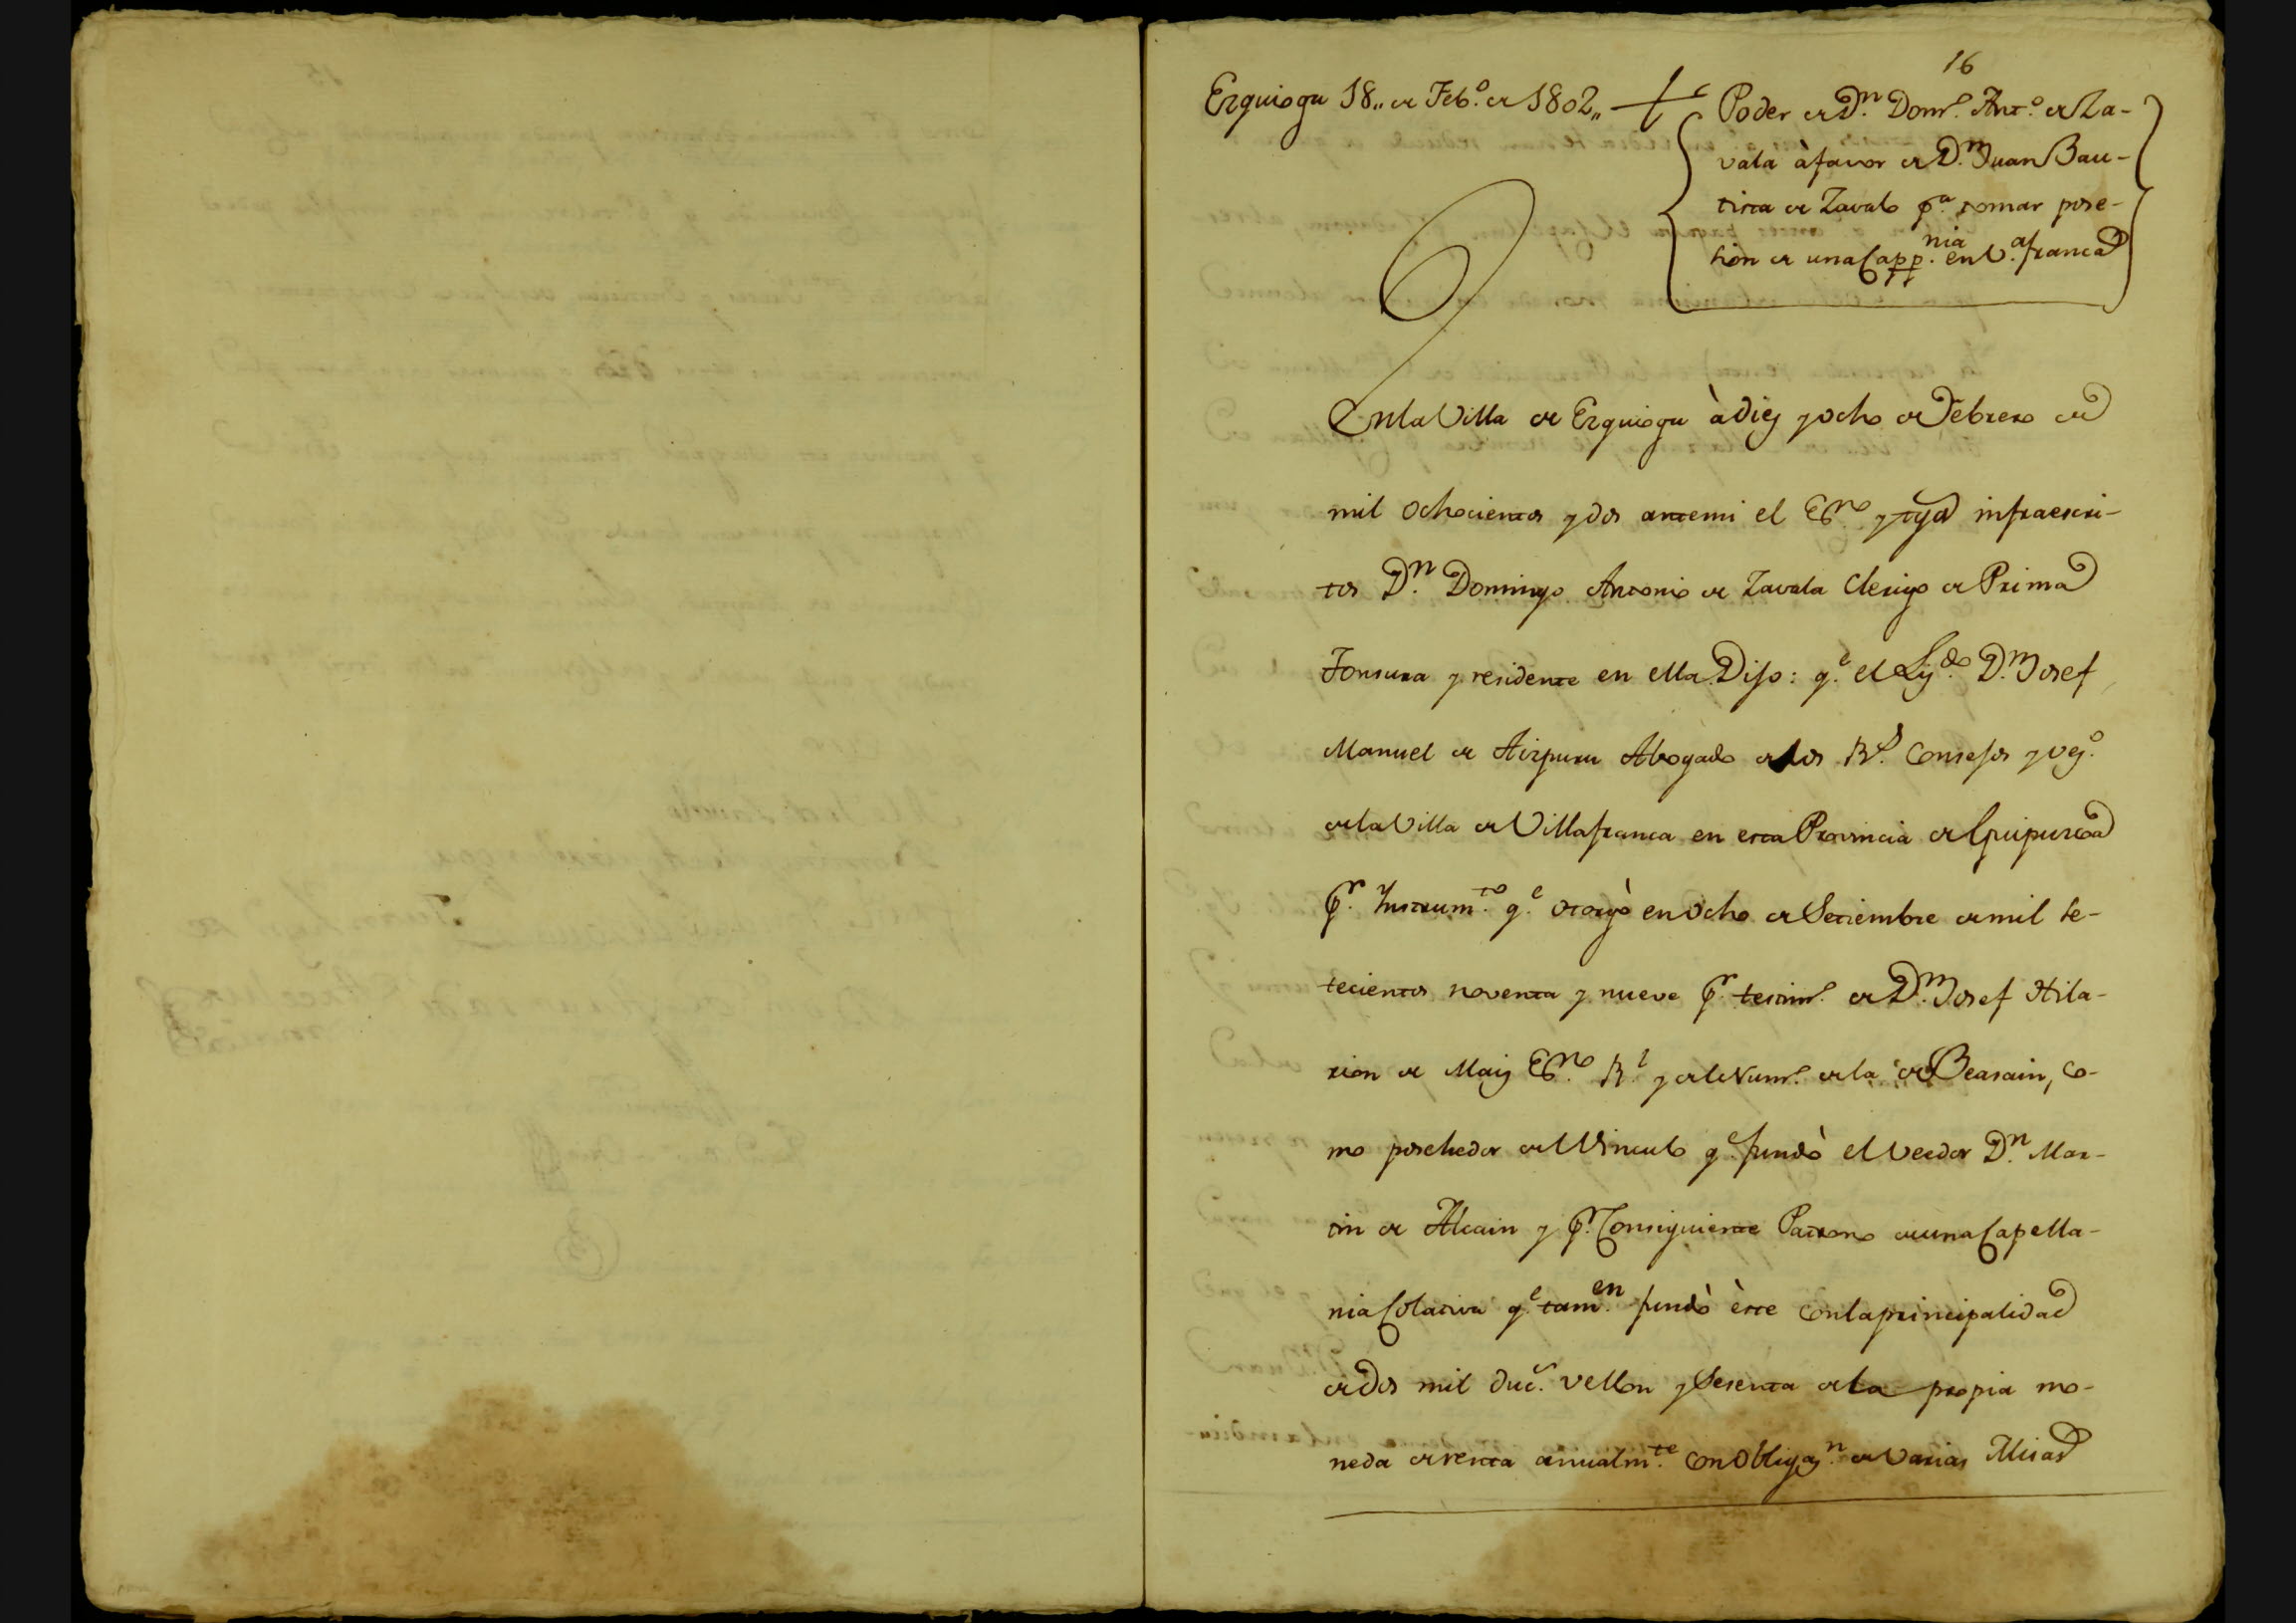 16
Ezquioga 18,, de Feb.º de 1802,,
Poder de D.n Dom.º Ant.º de Za-
vala à favor de D.n Juan Bau-
tista de Zavala p.a tomar pose-
sion de una Capp.nia en V.a franca
En la Villa de Ezquioga à diez y ocho de Febrero de
mil ochocientos y dos ante mi el Es.no y tgos infraescri-
tos D.n Domingo Antonio de Zavala Clerigo de Prima
Tonsura y residente en ella Dijo: q.e el Liz.do D.n Josef
Manuel de Aizpuru Abogado de los R.s Consejos y vez.º
de la Villa de Villafranca en esta Provincia de Guipuzcoa
p.r Instrum.to q.e otorgò en ocho de Setiembre de mil se-
tecientos noventa y nueve p.r testim.º de D.n Josef Hila-
rion de Maiz Es.no R.l y del Num.º de la de Beasain, co-
mo posehedor del Vinculo q.e fundò el Veedor D.n Mar-
tin de Alcain y p.r Consiguiente Patrono de una Capella-
nia Colativa q.e tam.en fundò èste con la principalidad
de dos mil duc.s vellon y sesenta de la propia mo-
neda de renta anualm.te con obligaz.n de varias Misas